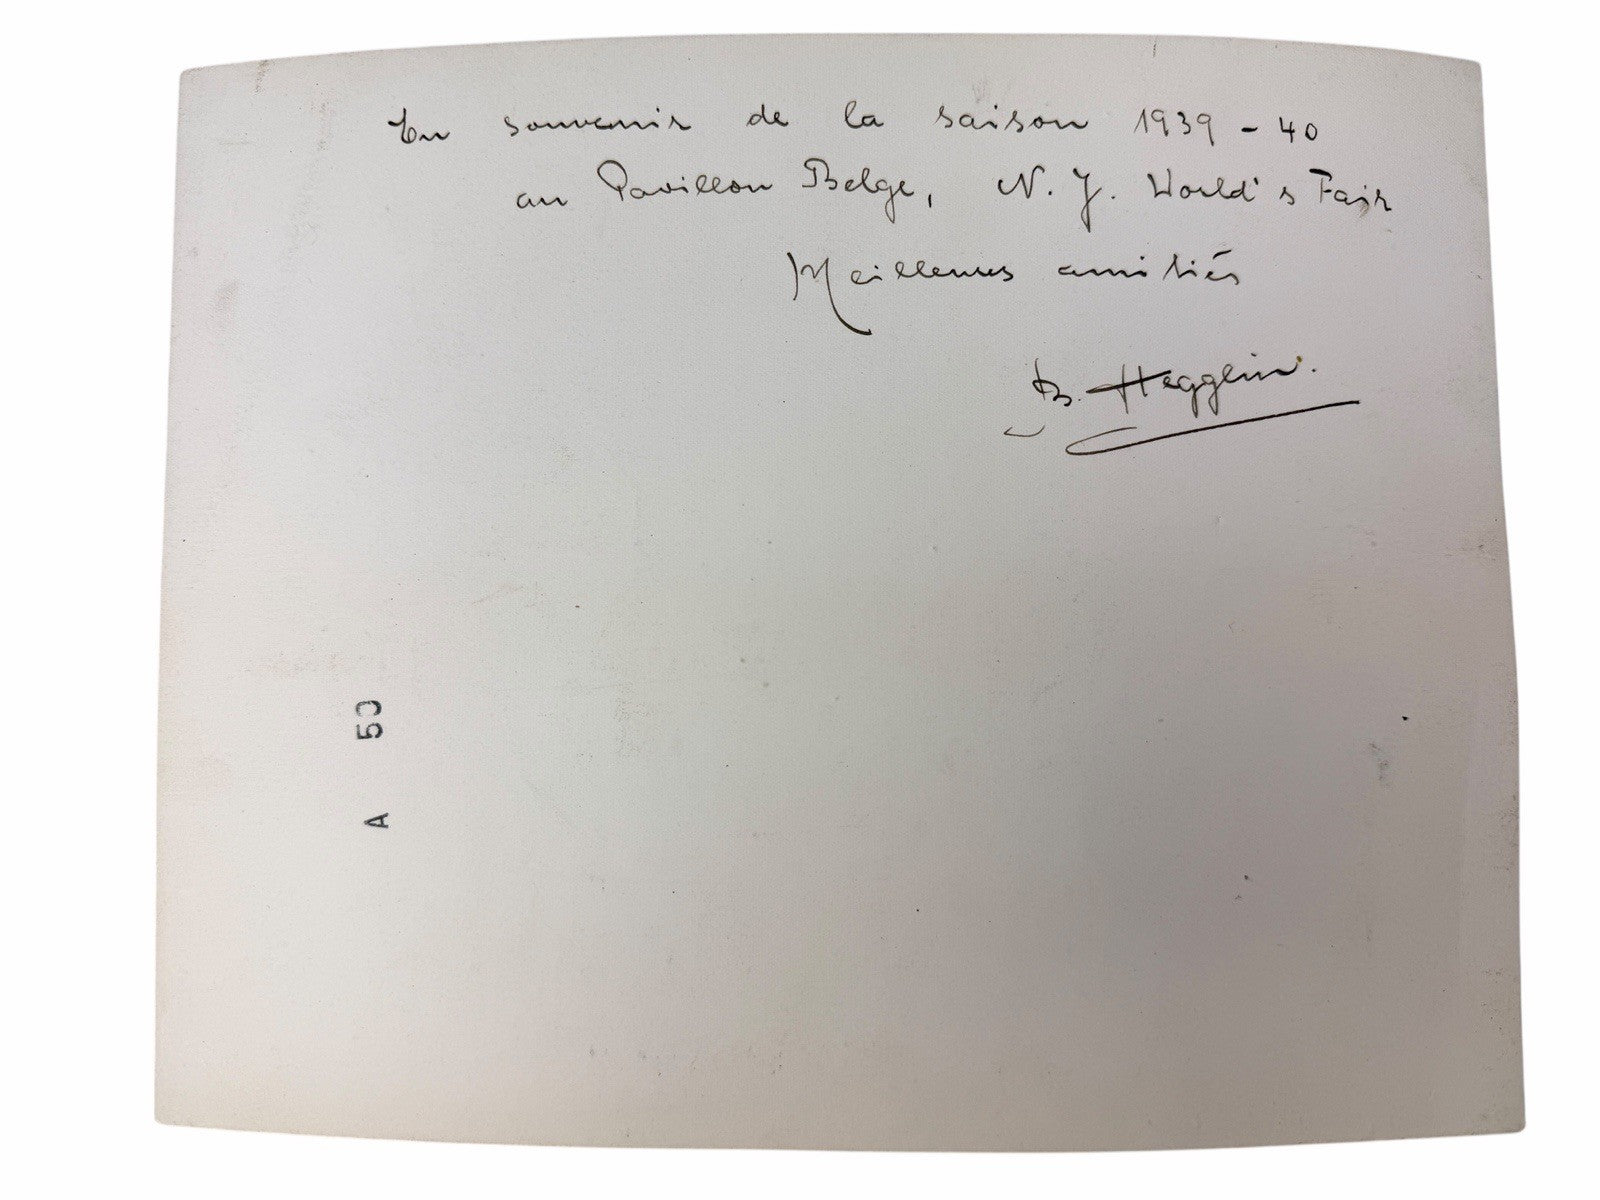 En souvenir de la saison 1939 - 40
au Pavillon Belge, N. Y. World's Fair
Meilleures amitiés
B. Hegglin.
A 50